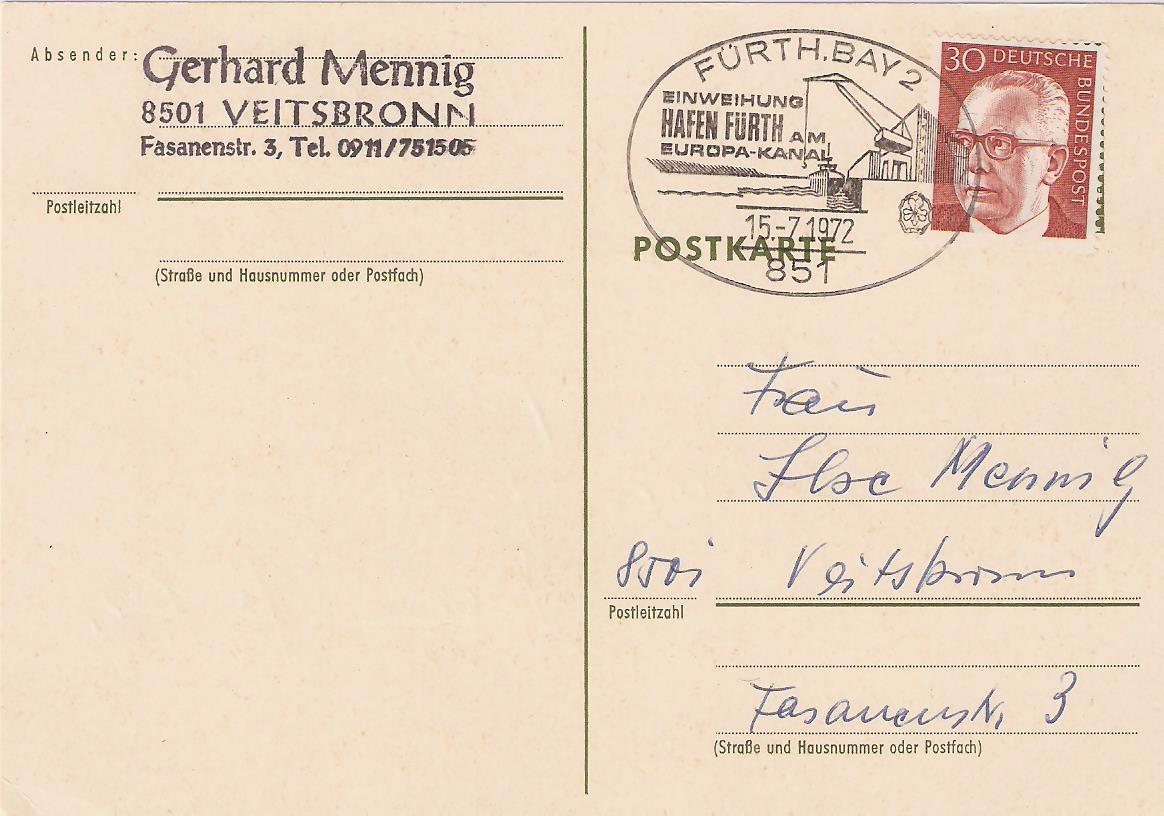 Absender:
Gerhard Mennig
8501 VEITSBRONN
Fasanenstr. 3, Tel. 0911/751505
Postleitzahl
(Straße und Hausnummer oder Postfach)
FÜRTH, BAY 2
EINWEIHUNG
HAFEN FÜRTH AM
EUROPA-KANAL
15.-7.1972
851
30 DEUTSCHE BUNDESPOST
POSTKARTE
Frau
Ilse Mennig
8501 Veitsbronn
Postleitzahl
Fasanenstr. 3
(Straße und Hausnummer oder Postfach)